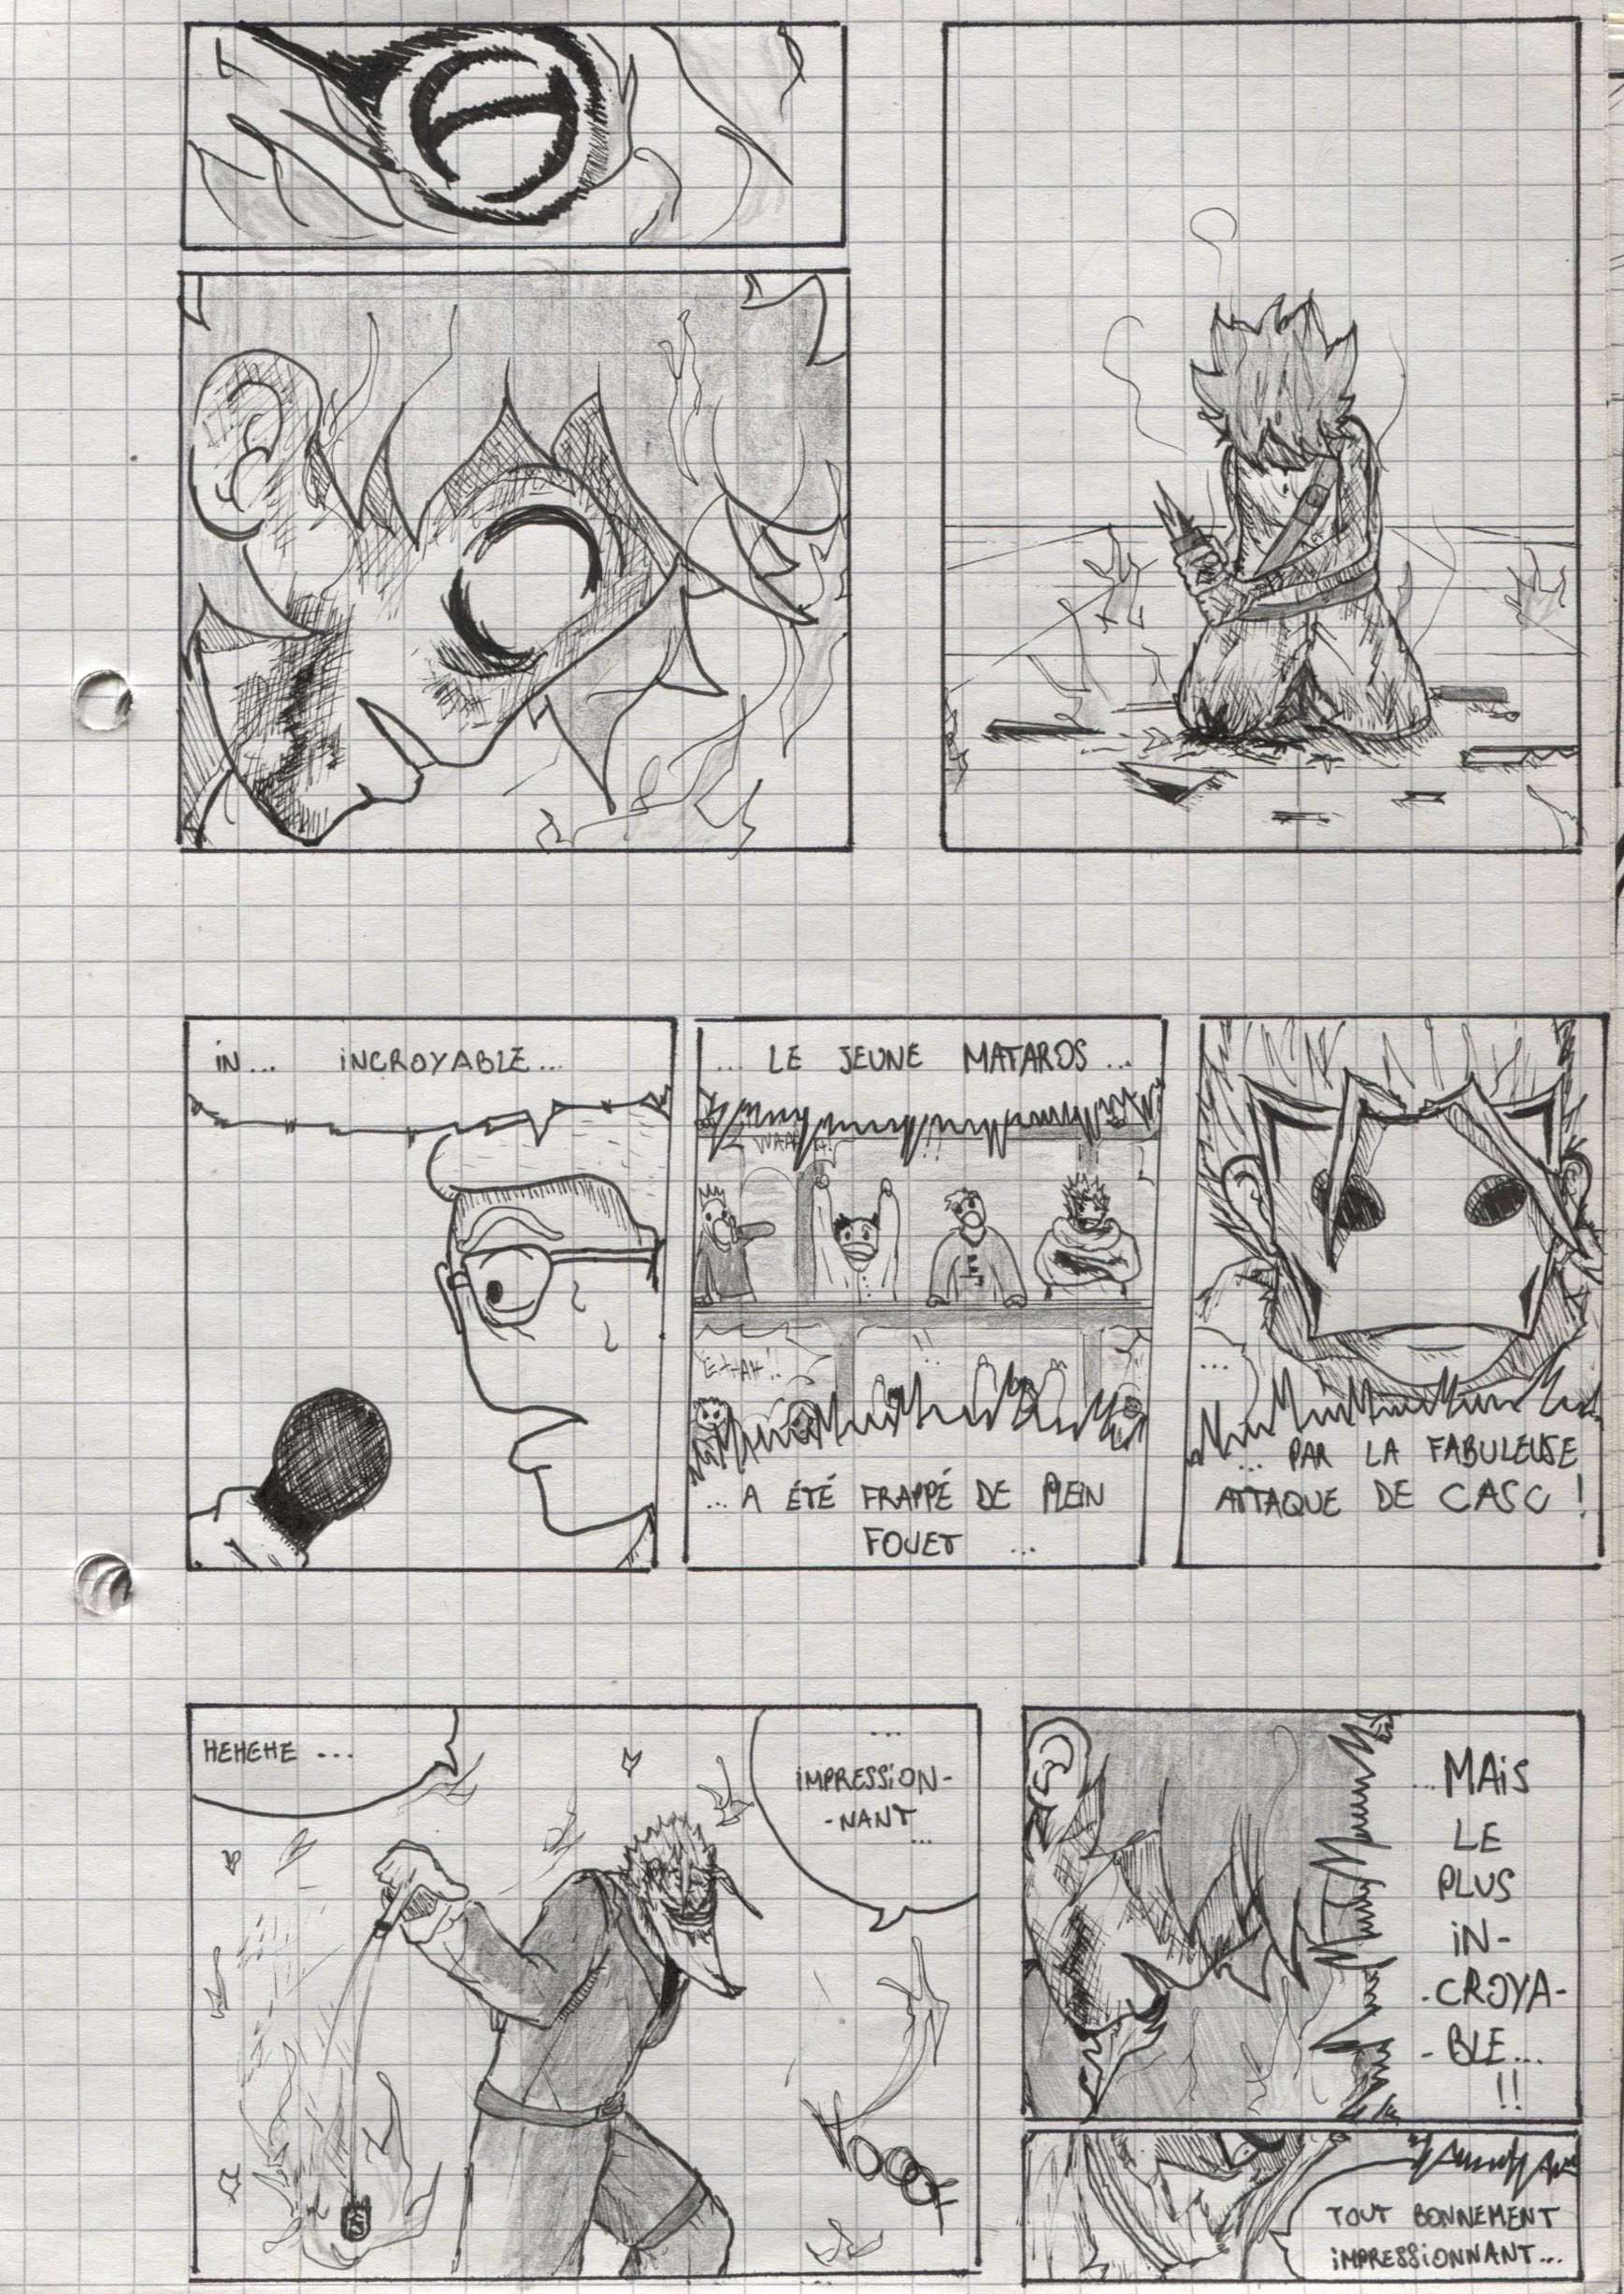 IN... INCROYABLE...
... LE JEUNE MATAROS ...
... A ÉTÉ FRAPPÉ DE PLEIN
FOUET ...
...
... PAR LA FABULEUSE
ATTAQUE DE CASC !
HEHEHE ...
...
IMPRESSION-
-NANT
...
...MAIS
LE
PLUS
IN-
-CROYA-
-BLE...
!!
TOUT BONNEMENT
IMPRESSIONNANT...